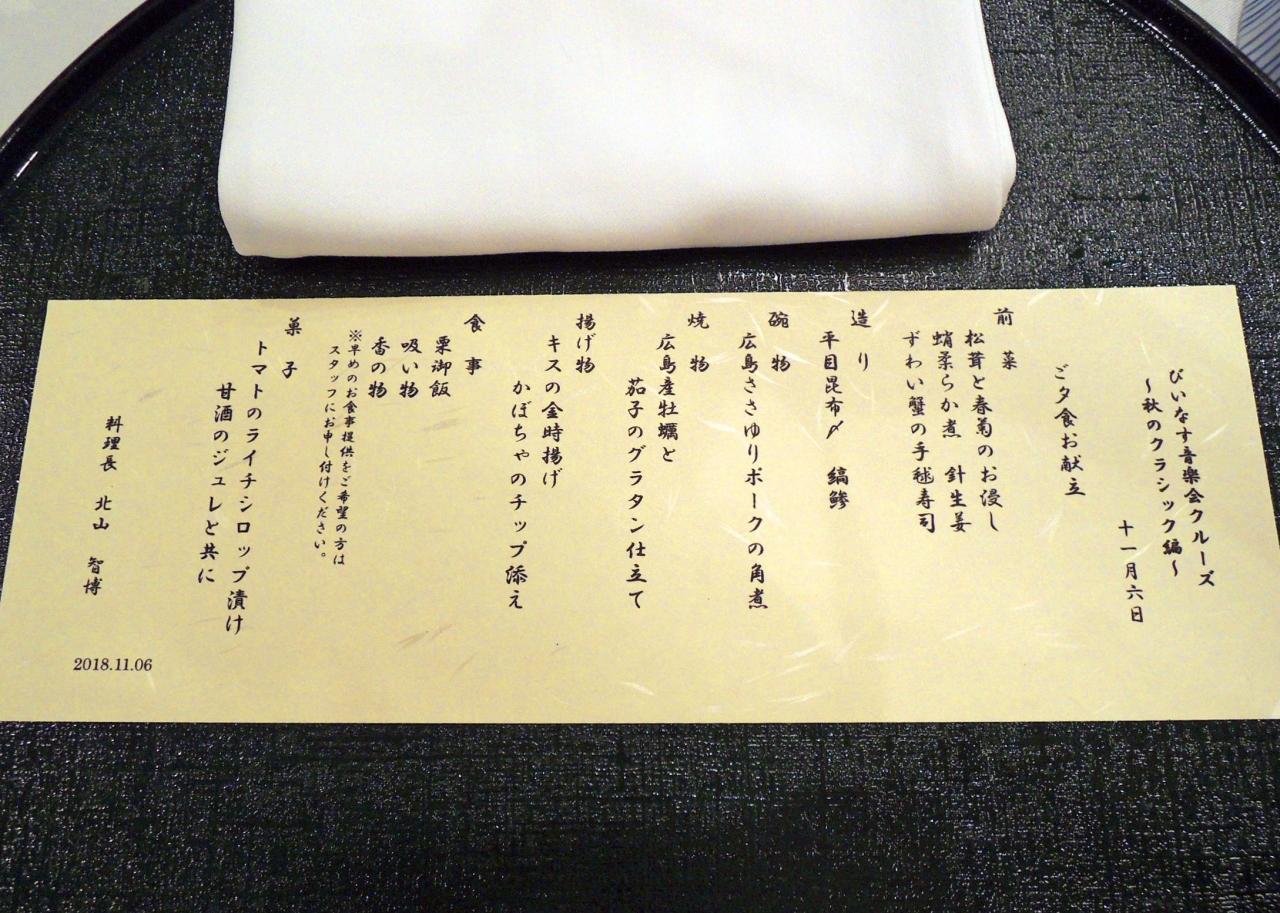 びいなす音楽会クルーズ
～秋のクラシック編～
十一月六日
ご夕食お献立
前菜
松茸と春菊のお浸し
蛸柔らか煮　針生姜
ずわい蟹の手毬寿司
造り
平目昆布〆　縞鯵
碗物
広島ささゆりポークの角煮
焼物
広島産牡蠣と
茄子のグラタン仕立て
揚げ物
キスの金時揚げ
かぼちゃのチップ添え
食事
栗御飯
吸い物
香の物
※早めのお食事提供をご希望の方は
スタッフにお申し付けください。
菓子
トマトのライチシロップ漬け
甘酒のジュレと共に
料理長　北山　智博
2018.11.06